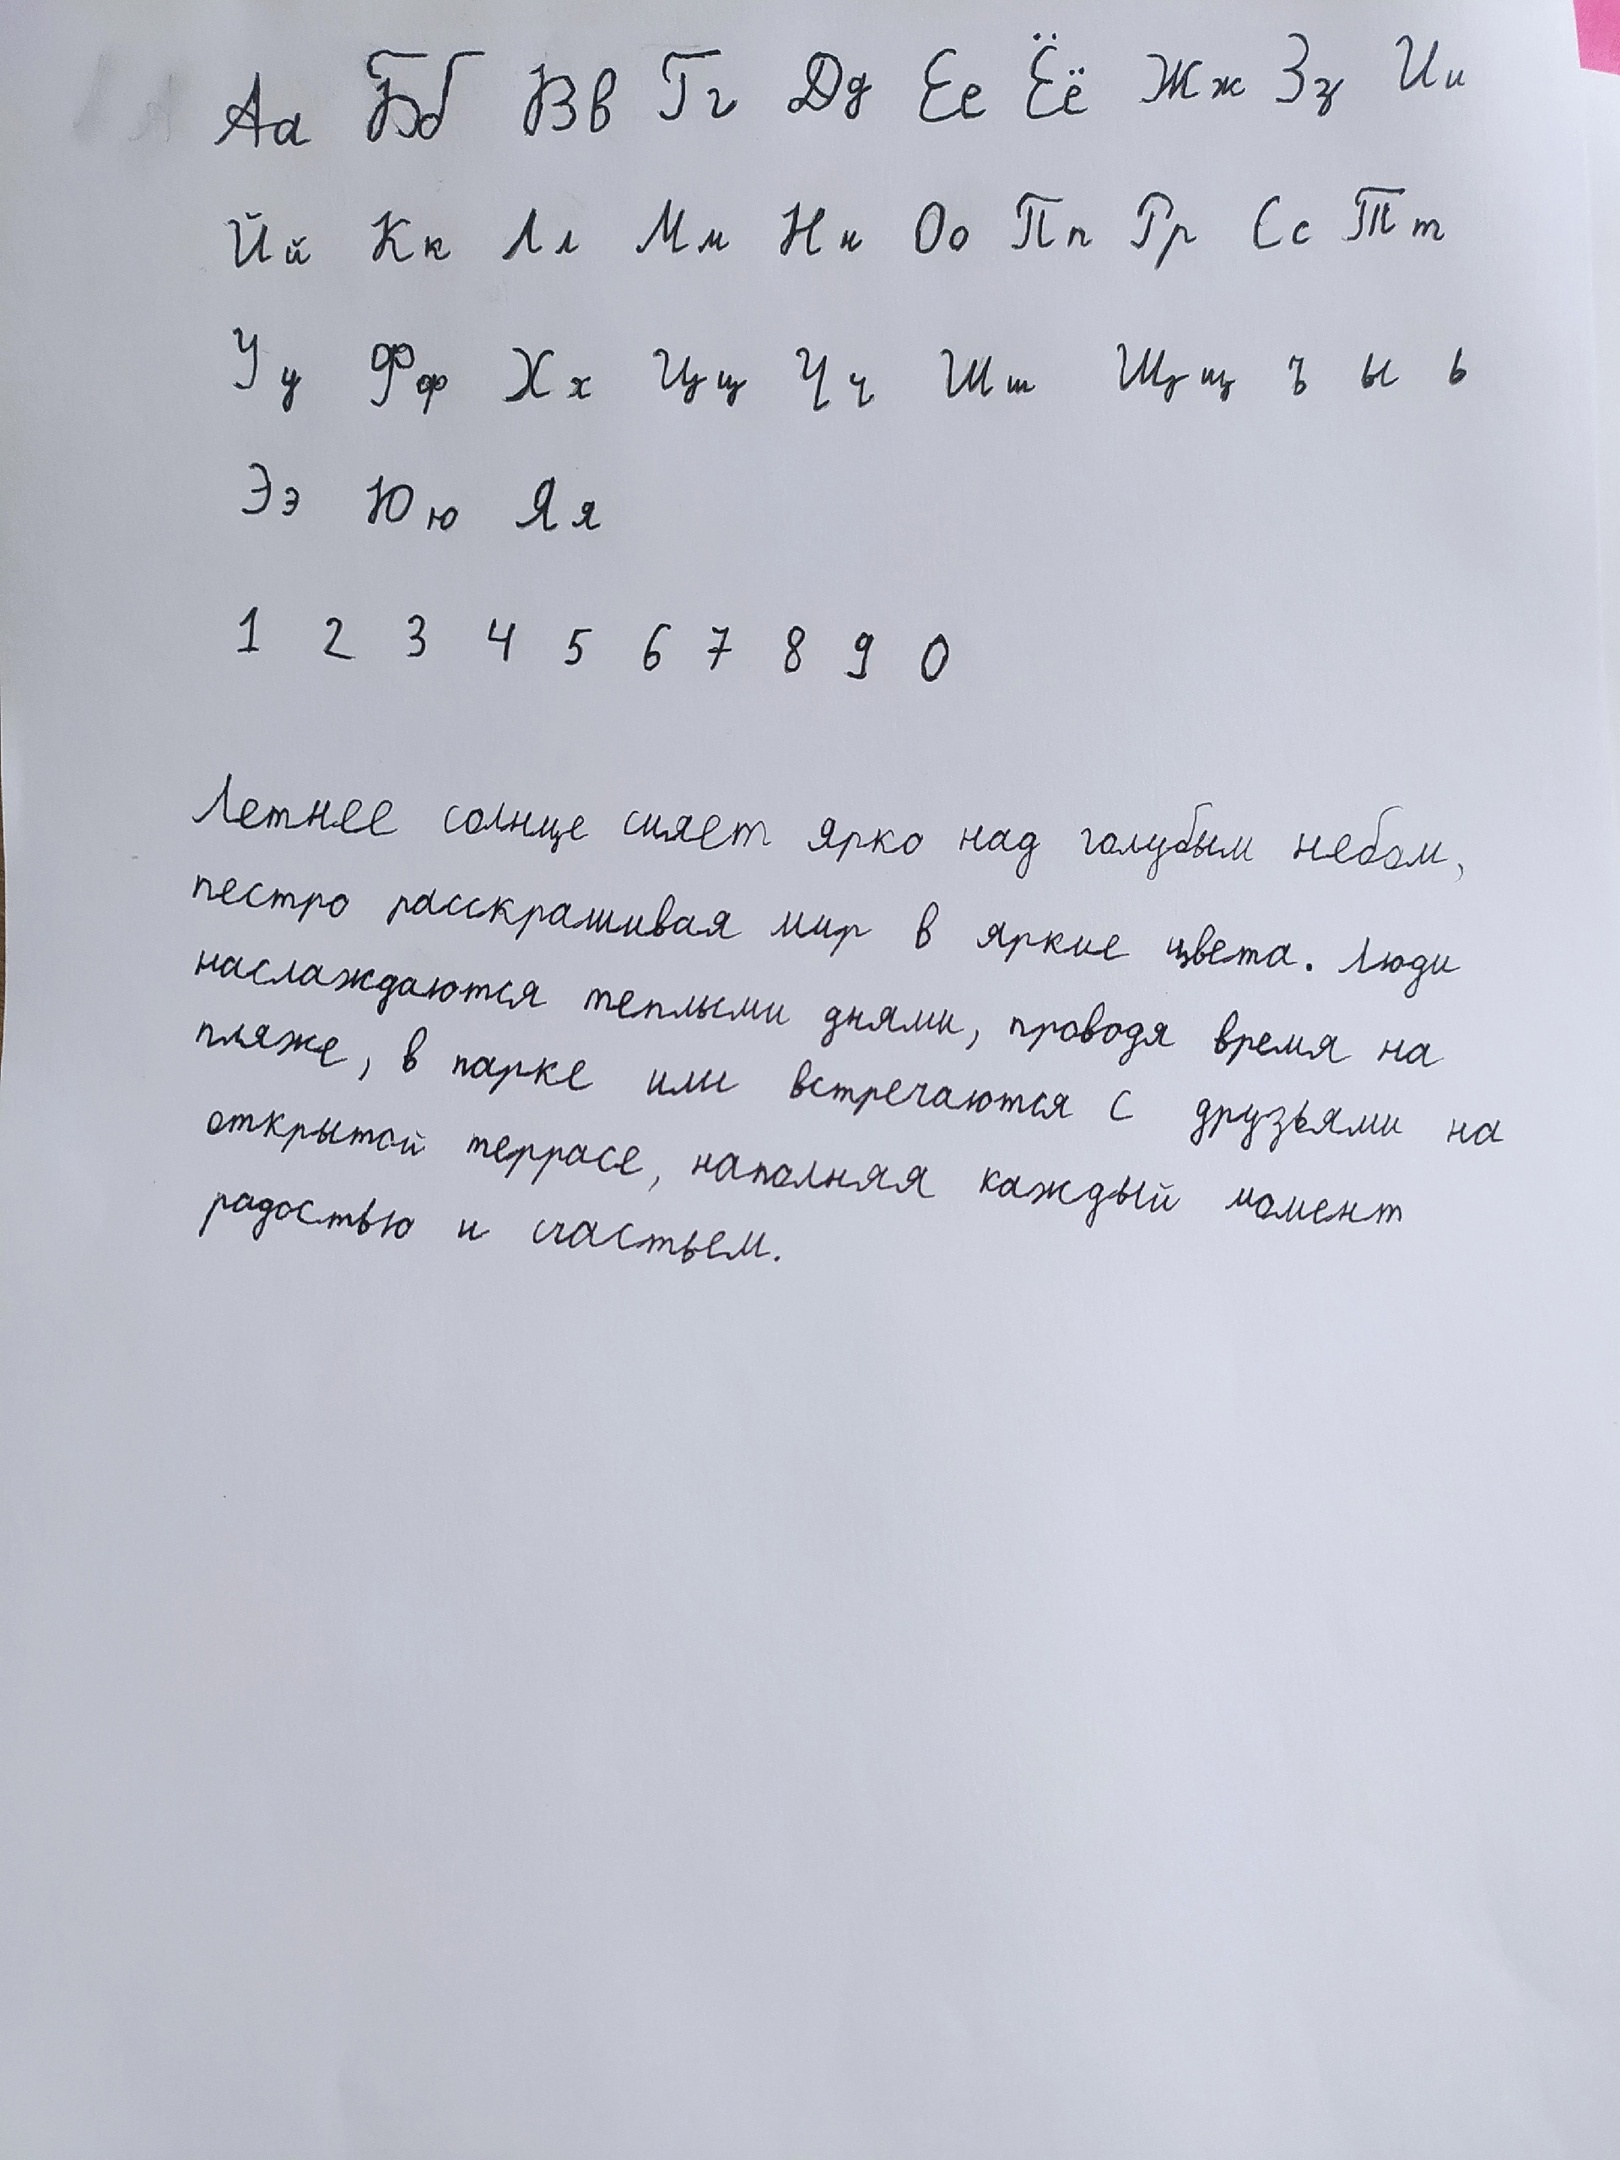 Аа Бб Вв Гг Дд Ее Ёё Жж Зз Ии
Йй Кк Лл Мм Нн Оо Пп Рр Сс Тт
Уу Фф Хх Цц Чч Шш Щщ ъ ы ь
Ээ Юю Яя
1 2 3 4 5 6 7 8 9 0
Летнее солнце сияет ярко над голубым небом,
пестро расскрашивая мир в яркие цвета. Люди
наслаждаются теплыми днями, проводя время на
пляже, в парке или встречаются с друзьями на
открытой террасе, наполняя каждый момент
радостью и счастьем.